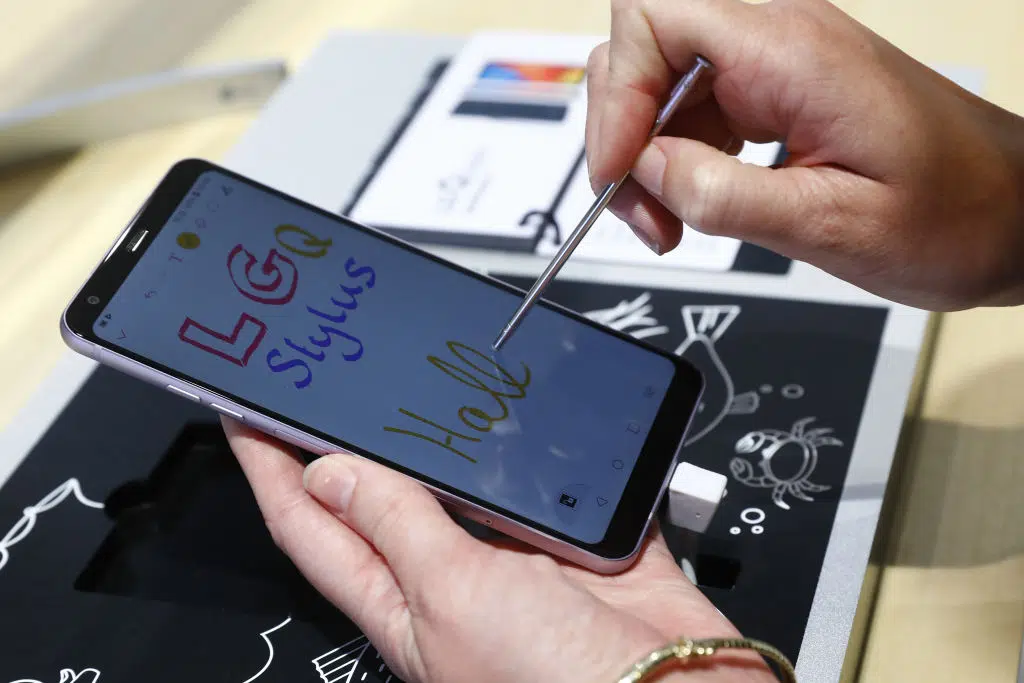 LG Q
Stylus
Hall